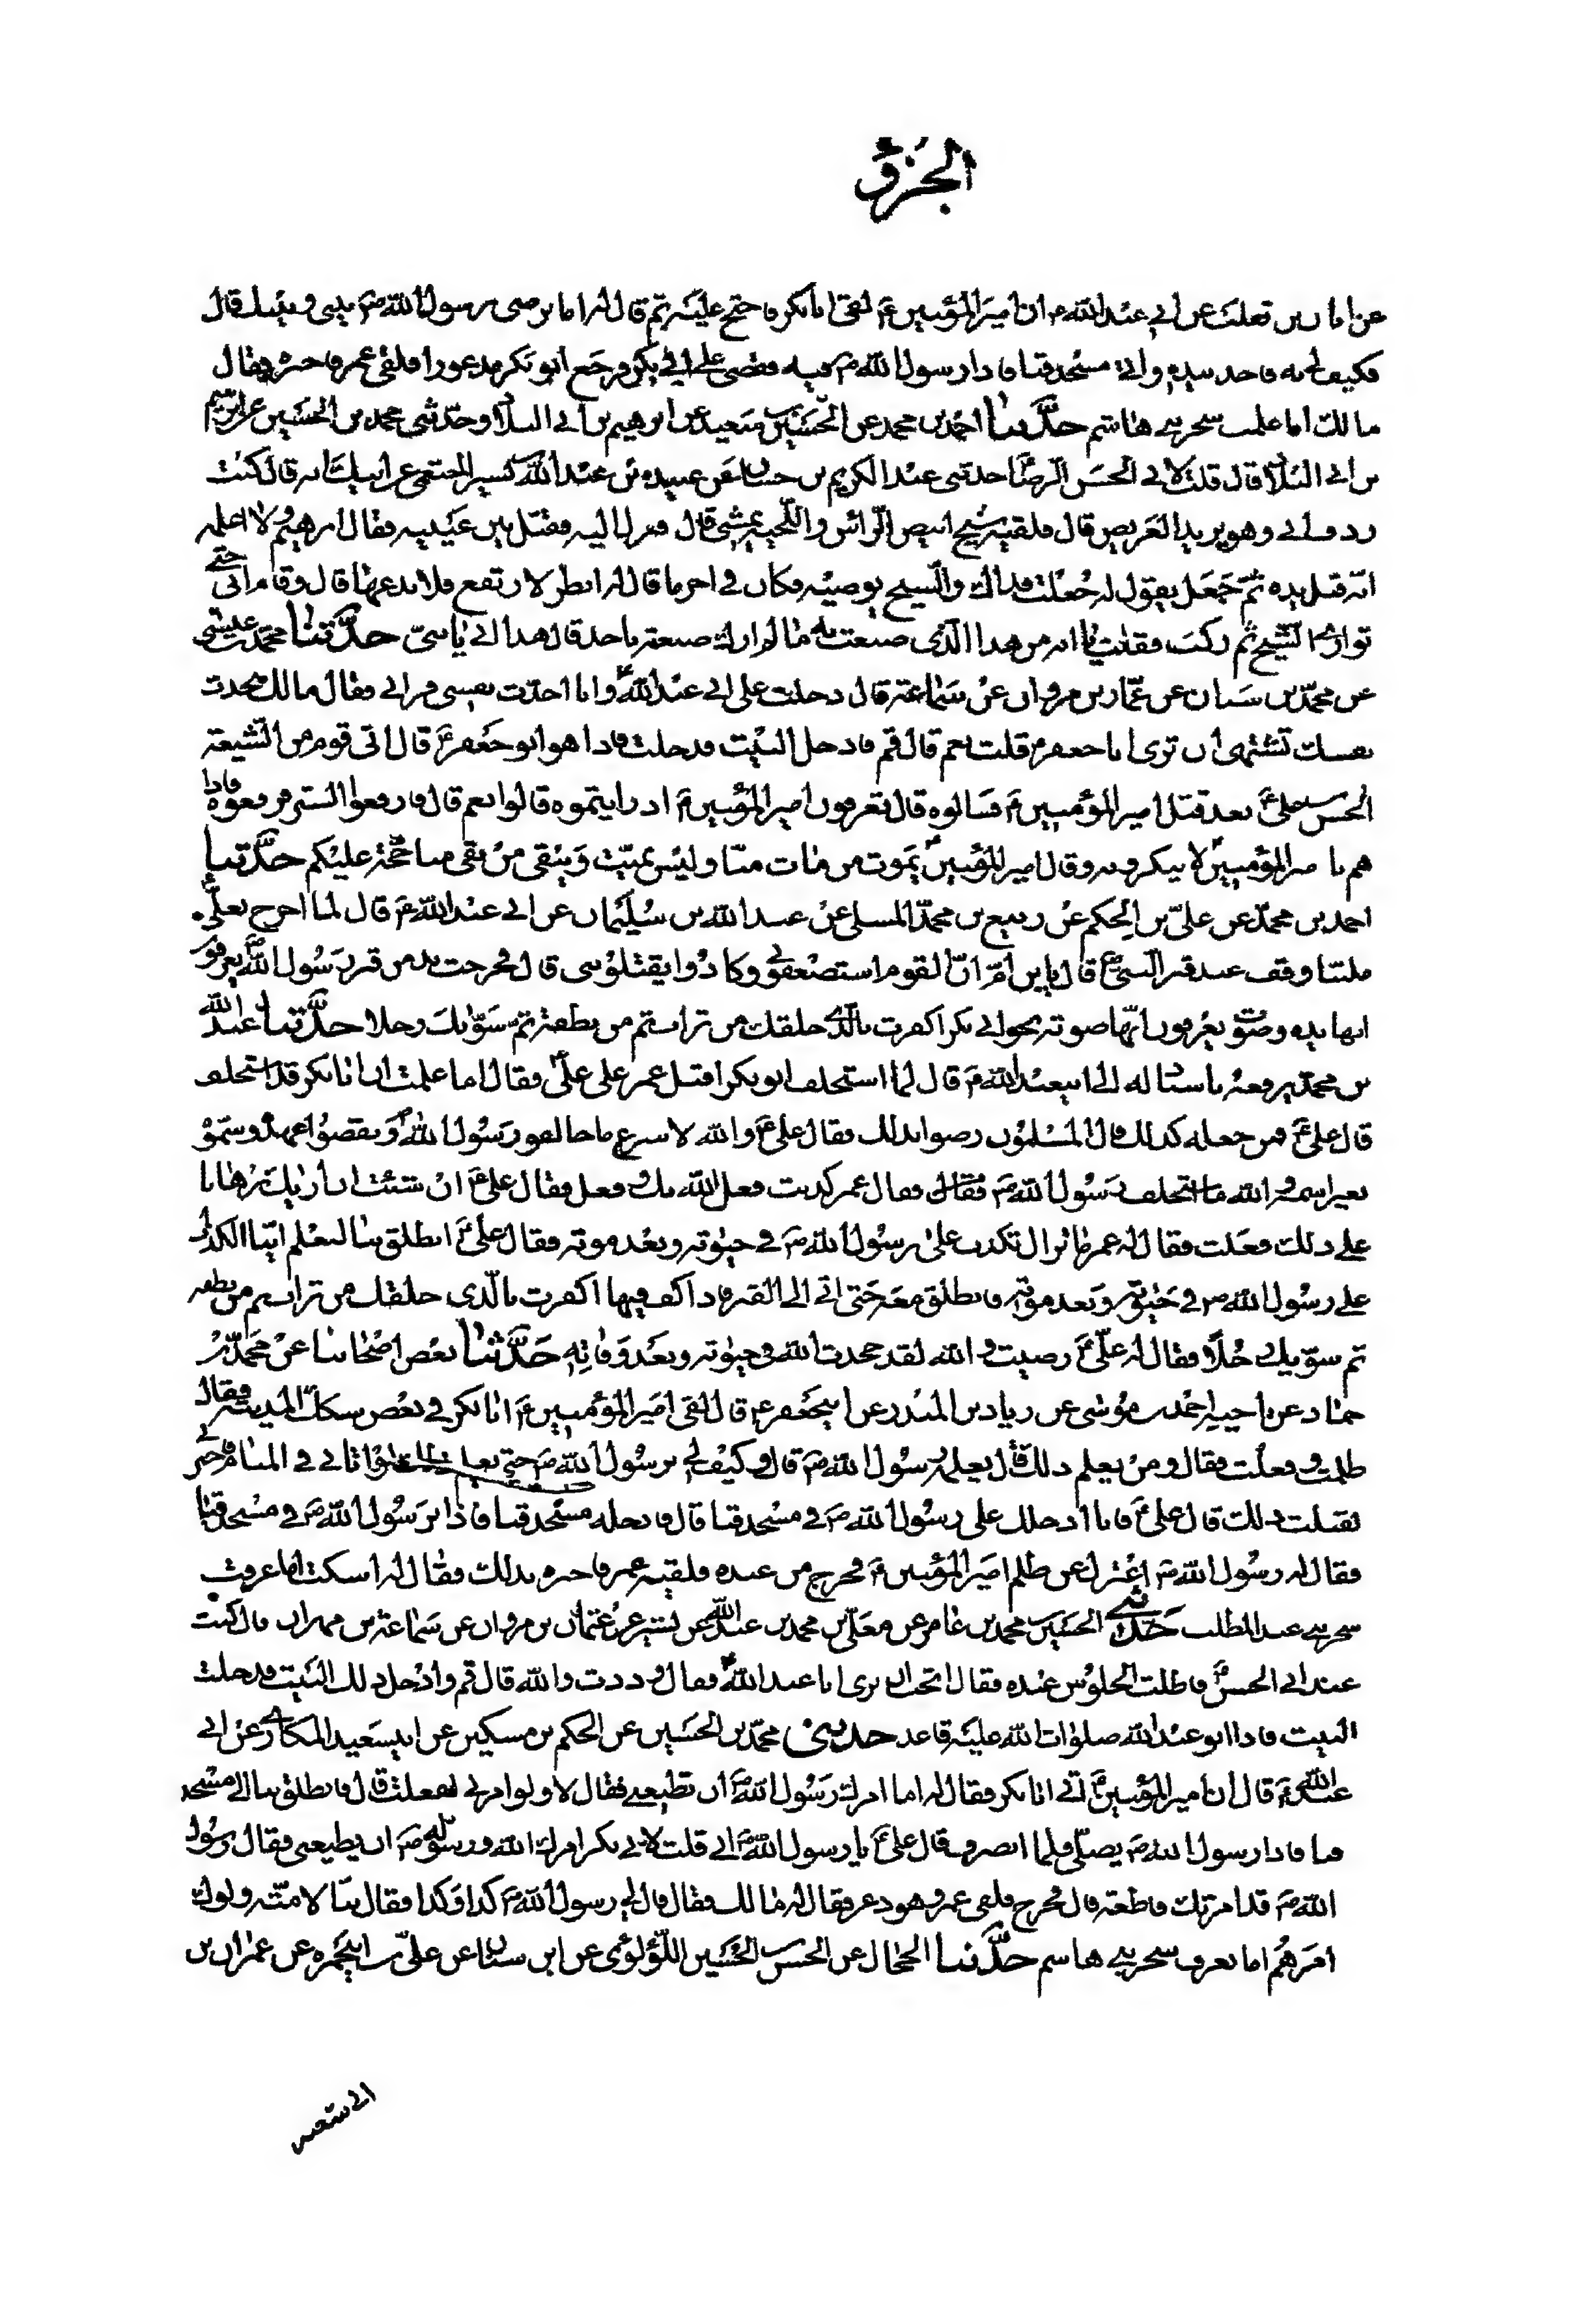 الجزؤ
عن ابان بن تغلب عن ابي عبد الله ع ان امير المؤمنين ع لقى ابا بكر فاحتج عليه ثم قال له اما ترضى برسول الله ص بيني وبينك قال
فكيف لي به فاخذ بيده واتى مسجد قبا فاذا رسول الله ص فيه فقضى على ابي بكر فرجع ابو بكر مذعورا فلقى عمر فاخبره فقال
مالك اما علمت سحر بني هاشم حدثنا احمد بن محمد عن الحسين بن سعيد عن ابرهيم بن ابي البلاد وحدثني محمد بن الحسين عن ابرهيم
بن ابي البلاد قال قلت لابي الحسن الرضا ع حدثني عبد الكريم بن حسان عن عبيده بن عبد الله بن بشير الخثعمي عن ابيك انه قال كنت
ردف ابي وهو يريد العريض قال فلقيه شيخ ابيض الرأس واللحية يمشي قال فنزل اليه فقبل بين عينيه فقال ابرهيم ولا اعلمه
الا انه قبل يده ثم جعل يقول له جعلت فداك والشيخ يوصيه فكان في اخر ما قال له انظر الاربع فلا تدعها قال وقام ابي حتى
توارى الشيخ ثم ركب فقلت يا ابه من هذا الذي صنعت به ما لم ارك صنعته باحد قال هذا ابي يا بني حدثنا محمد بن عيسى
عن محمد بن سنان عن عمار بن مروان عن سماعة قال دخلت على ابي عبد الله ع وانا احدث نفسي فراني فقال مالك تحدث
نفسك تشتهى ان ترى ابا جعفر ع قلت نعم قال قم فادخل البيت فدخلت فاذا هو ابو جعفر ع قال اتى قوم من الشيعة
الحسن بن علي ع بعد قتل امير المؤمنين ع فسالوه قال تعرفون امير المؤمنين ع اذ رايتموه قالوا نعم قال فارفعوا الستر فرفعوه فاذا
هم بامير المؤمنين ع لا ينكرونه وقال امير المؤمنين ع يموت من مات منا وليس بميت ويبقى من بقى منا حجة عليكم حدثنا
احمد بن محمد عن علي بن الحكم عن ربيع بن محمد المسلي عن عبد الله بن سليمان عن ابي عبد الله ع قال لما اخرج بعلي ع
ملببا وقف عند قبر النبي ص قال يابن ام ان القوم استضعفوني وكادوا يقتلونني قال فخرجت يد من قبر رسول الله ص يعرفون
انها يده وصوت يعرفون انها صوته نحو ابي بكر اكفرت بالذي خلقك من تراب ثم من نطفة ثم سوّيك رجلا حدثنا عبد الله
بن محمد يرفعه باسناد له الى ابيعبد الله ع قال لما استخلف ابو بكر اقبل عمر على علي ع فقال اما علمت ان ابا بكر قد استخلف
قال علي ع فمن جعله كذلك قال المسلمون رضوا بذلك فقال علي ع والله لاسرع ما خالفوا رسول الله ص ونقضوا عهده وسموه
بغير اسمه والله ما استخلفه رسول الله ص فقال فقال عمر كذبت فعل الله بك وفعل فقال علي ع ان شئت ان اريك برهانا
على ذلك فعلت فقال له عمر ما تزال تكذب على رسول الله ص في حيوته وبعد موته فقال علي ع انطلق بنا لنعلم اينا الكذاب
على رسول الله ص في حيوته وبعد موته فانطلق معه حتى اتى الى القبر فاذا كف فيها اكفرت بالذي خلقك من تراب ثم من نطفه
ثم سوّيك رجلا فقال له علي ع رضيت والله لقد جحدت الله في حيوته وبعد وفاته حدثنا بعض اصحابنا عن محمد بن
حماد عن اخيه احمد بن موسى عن زياد بن المنذر عن ابيجعفر ع قال لقى امير المؤمنين ع ابا بكر في بعض سكك المدينة فقال
ظلمت وفعلت فقال ومن يعلم ذلك قال يعلمه رسول الله ص قال وكيف لي برسول الله ص حتى يعلمني ذلك لو اتاني في المنام فاخبرني
لقبلت ذلك قال علي ع فانا ادخلك على رسول الله ص في مسجد قبا قال فادخله مسجد قبا فاذا برسول الله ص في مسجد قبا
فقال له رسول الله ص اعتزل عن ظلم امير المؤمنين ع فخرج من عنده فلقيه عمر فاخبره بذلك فقال له اسكت اما عرفت
سحر بني عبد المطلب حدثني الحسين بن محمد بن عامر عن معلى بن محمد بن عبد الله عن بشير عن عثمان بن مروان عن سماعة بن مهران قال كنت
عند ابي الحسن ع فاطلت الجلوس عنده فقال اتحب ان ترى ابا عبد الله ع فقال وددت والله قال قم وادخل ذلك البيت فدخلت
البيت فاذا ابو عبد الله صلوات الله عليه قاعد حدثني محمد بن الحسين عن الحكم بن مسكين عن ابيسعيد المكاري عن ابي
عبد الله ع قال ان امير المؤمنين ع اتى ابا بكر فقال له اما امرك رسول الله ص ان تطيعني فقال لا ولو امرني لفعلت قال فانطلق بنا الى مسجد
قبا فاذا رسول الله ص يصلي فلما انصرف قال علي ع يا رسول الله ص اني قلت لابي بكر امرك الله ورسوله ص ان يطيعني فقال رسول
الله ص قد امرتك فاطعه قال فخرج فلقى عمر وهو ذعر فقال له مالك فقال قال لي رسول الله ص كذا وكذا فقال تبا لامته ولوك
امرهم اما تعرف سحر بني هاشم حدثنا الحجال عن الحسن بن الحسين اللؤلؤي عن ابن سنان عن علي بن ابيحمزه عن عمران بن